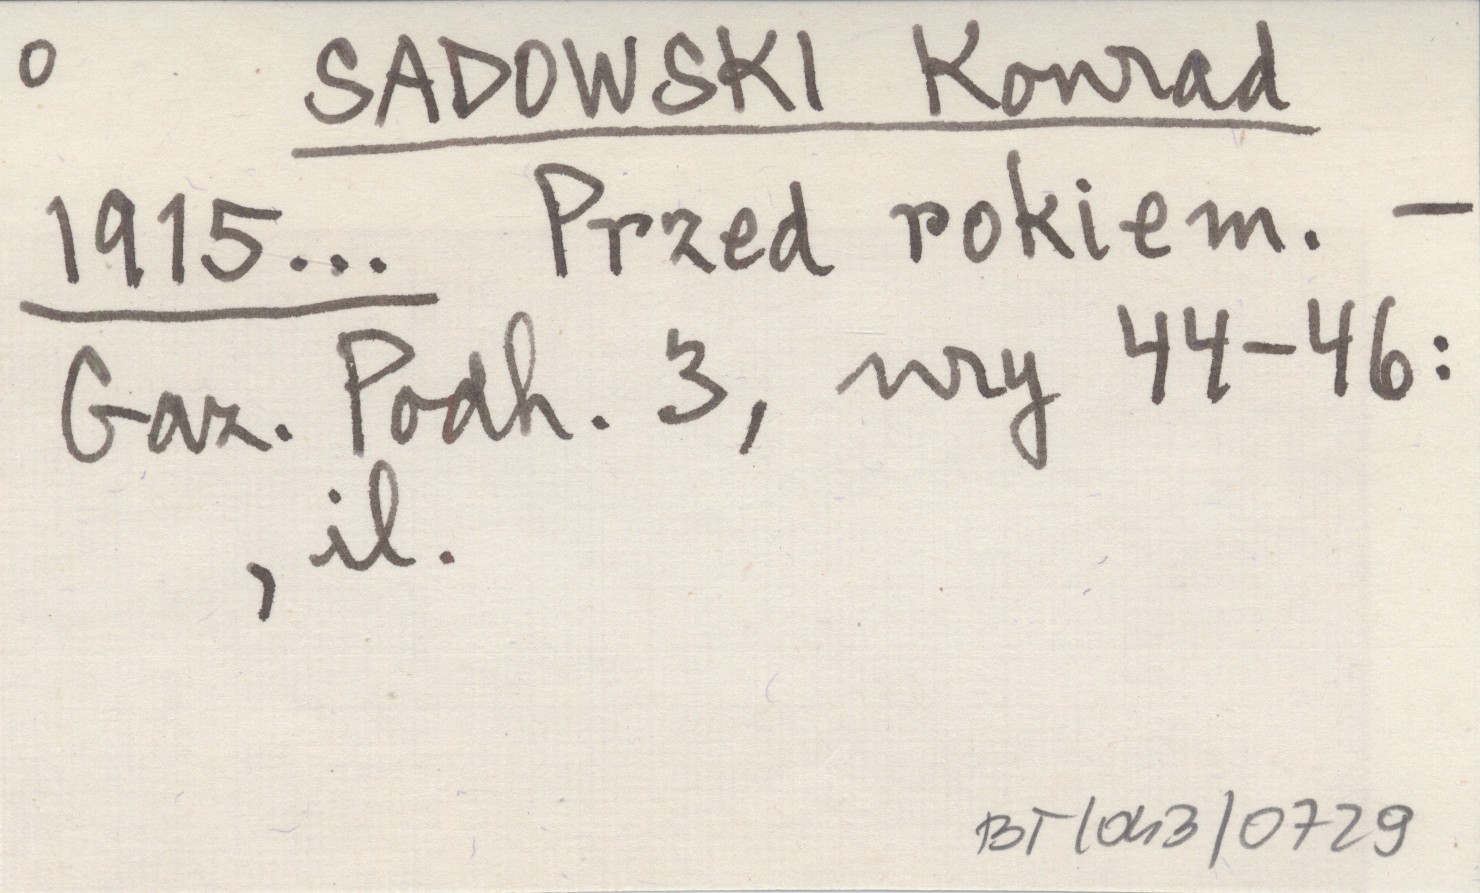 o SADOWSKI Konrad
1915... Przed rokiem. —
Gaz. Podh. 3, nry 44-46:
, il.
BT/043/0729